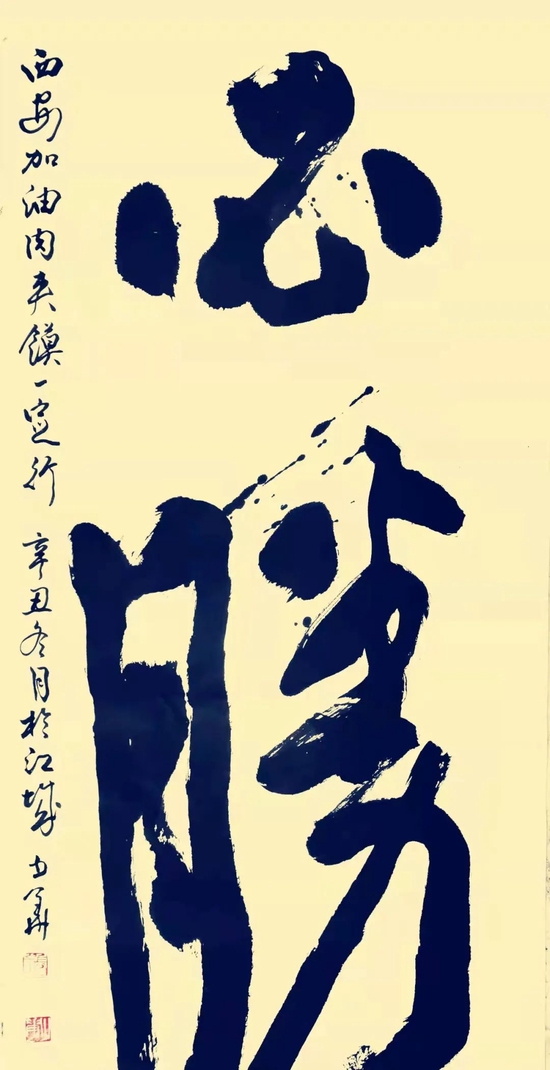 必勝
西安加油肉夹馍一定行 辛丑冬月於江城